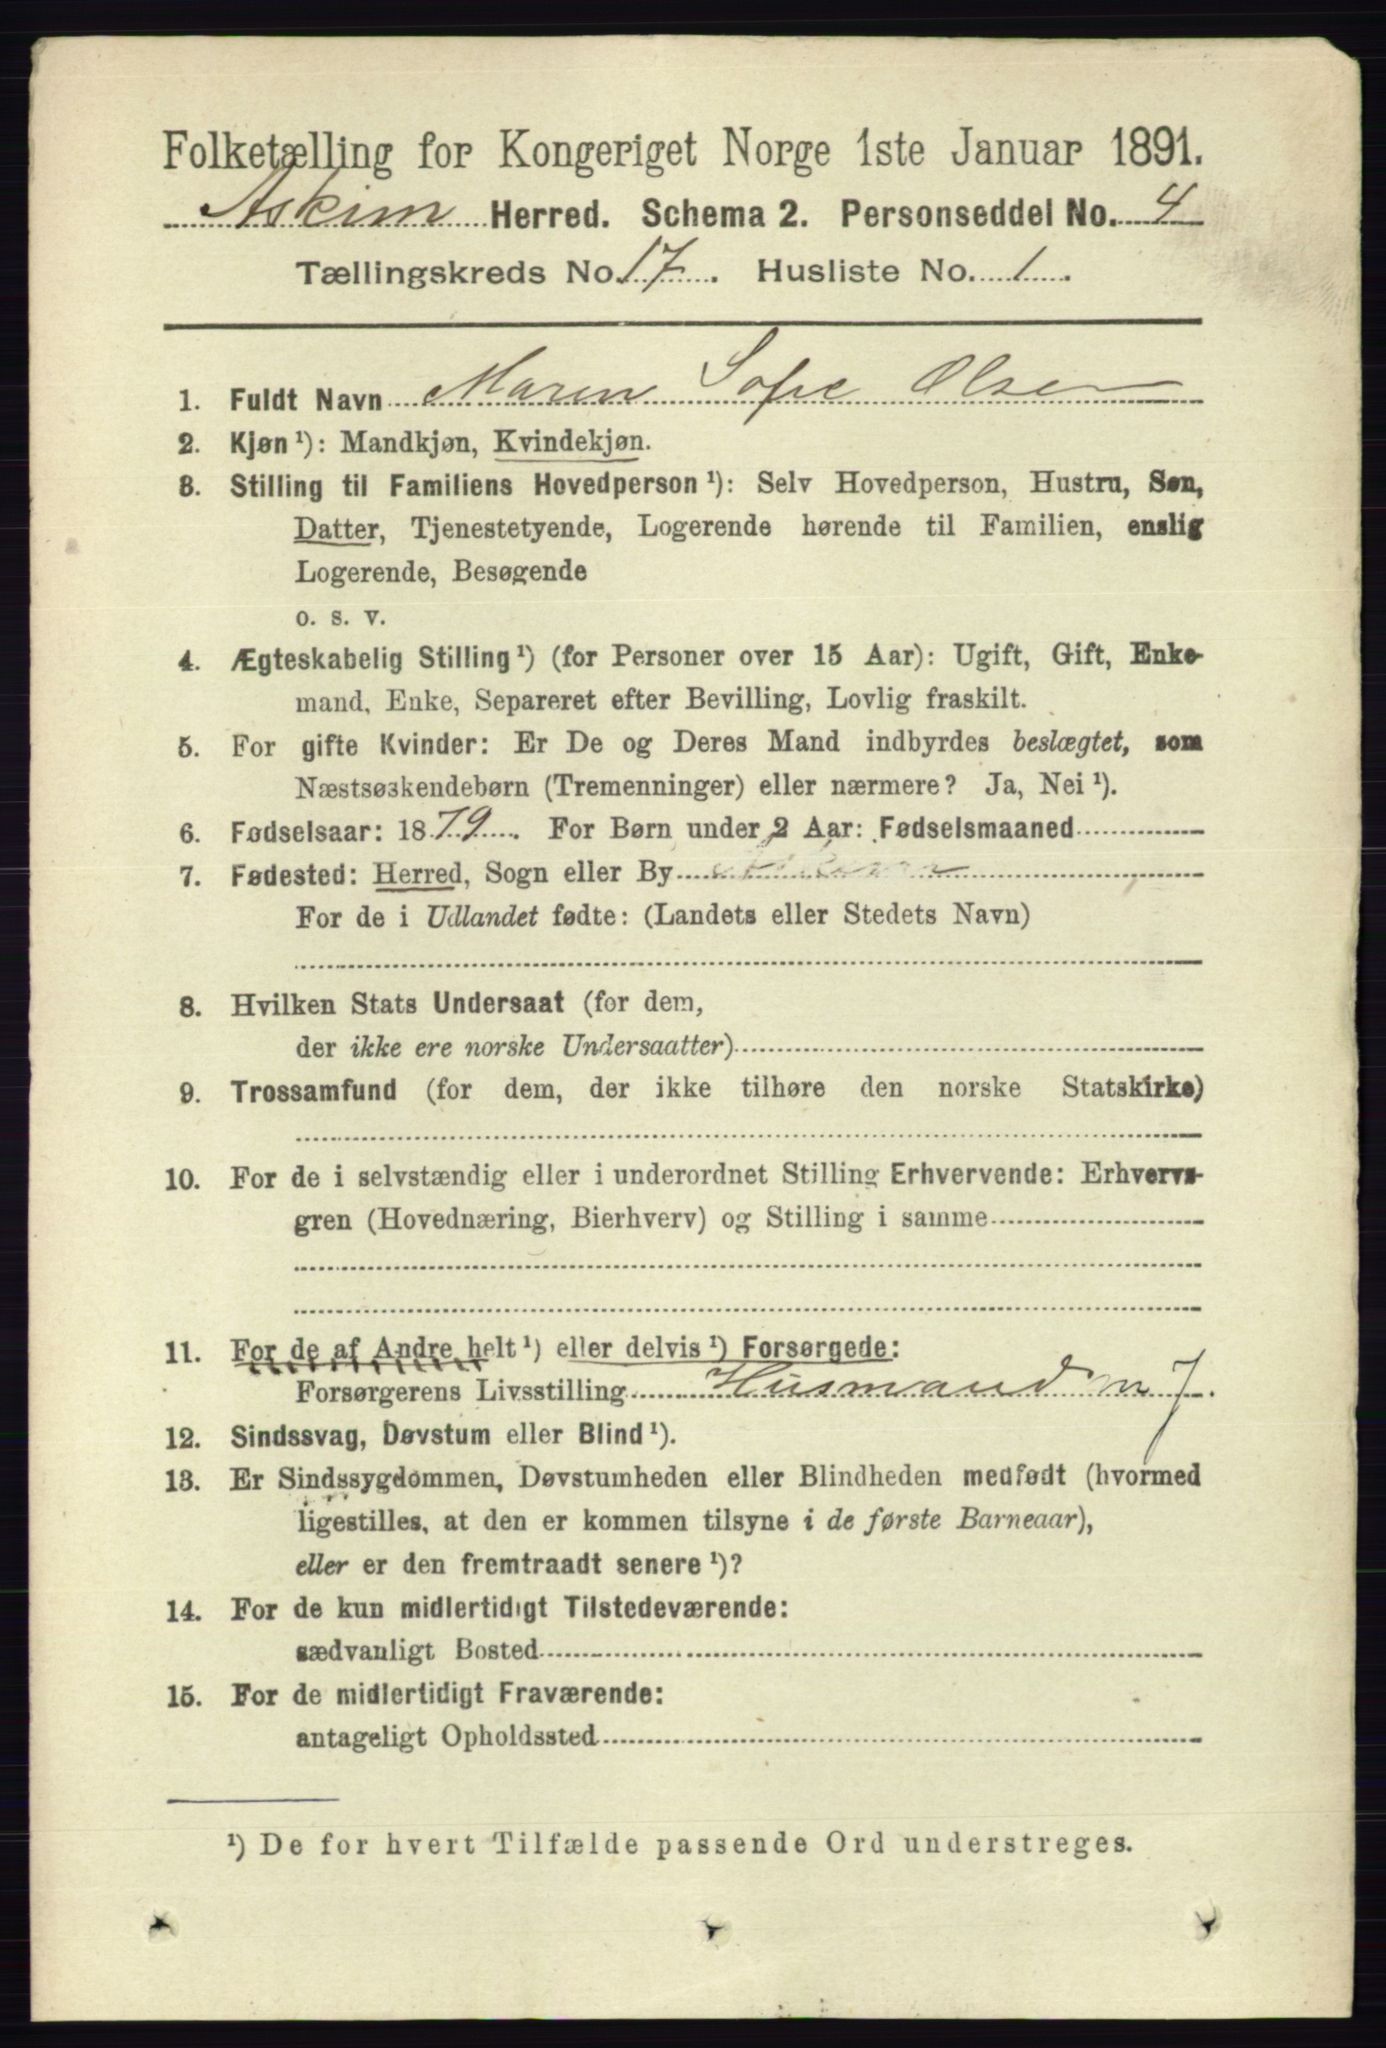 Folketælling for Kongeriget Norge 1ste Januar 1891.
Askim Herred. Schema 2. Personseddel No. 4
Tællingskreds No. 17. Husliste No. 1.
1. Fuldt Navn Maren Sofie Olsen
2. Kjøn ¹): Mandkjøn, Kvindekjøn.
3. Stilling til Familiens Hovedperson ¹): Selv Hovedperson, Hustru, Søn,
Datter, Tjenestetyende, Logerende hørende til Familien, enslig
Logerende, Besøgende
o. s. v.
4. Ægteskabelig Stilling ¹) (for Personer over 15 Aar): Ugift, Gift, Enke-
mand, Enke, Separeret efter Bevilling, Lovlig fraskilt.
5. For gifte Kvinder: Er De og Deres Mand indbyrdes beslægtet, som
Næstsøskendebørn (Tremenninger) eller nærmere? Ja, Nei ¹).
6. Fødselsaar: 1879. For Børn under 2 Aar: Fødselsmaaned
7. Fødested: Herred, Sogn eller By Askim
For de i Udlandet fødte: (Landets eller Stedets Navn)
8. Hvilken Stats Undersaat (for dem,
der ikke ere norske Undersaatter)
9. Trossamfund (for dem, der ikke tilhøre den norske Statskirke)
10. For de i selvstændig eller i underordnet Stilling Erhvervende: Erhvervs-
gren (Hovednæring, Bierhverv) og Stilling i samme
11. For de af Andre helt ¹) eller delvis ¹) Forsørgede:
Forsørgerens Livsstilling Husmand m J.
12. Sindssvag, Døvstum eller Blind ¹).
13. Er Sindssygdommen, Døvstumheden eller Blindheden medfødt (hvormed
ligestilles, at den er kommen tilsyne i de første Barneaar),
eller er den fremtraadt senere ¹)?
14. For de kun midlertidigt Tilstedeværende:
sædvanligt Bosted
15. For de midlertidigt Fraværende:
antageligt Opholdssted
¹) De for hvert Tilfælde passende Ord understreges.